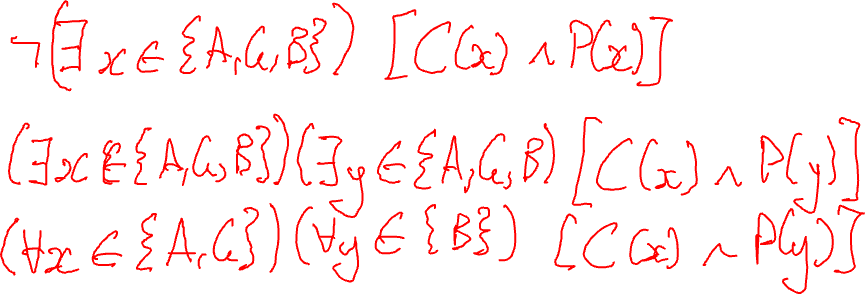 ¬(∃x∈{A,G,B}) [C(x)∧P(x)]
(∃x∈{A,G,B})(∃y∈{A,G,B) [C(x)∧P(y)]
(∀x∈{A,G})(∀y∈{B}) [C(x)∧P(y)]